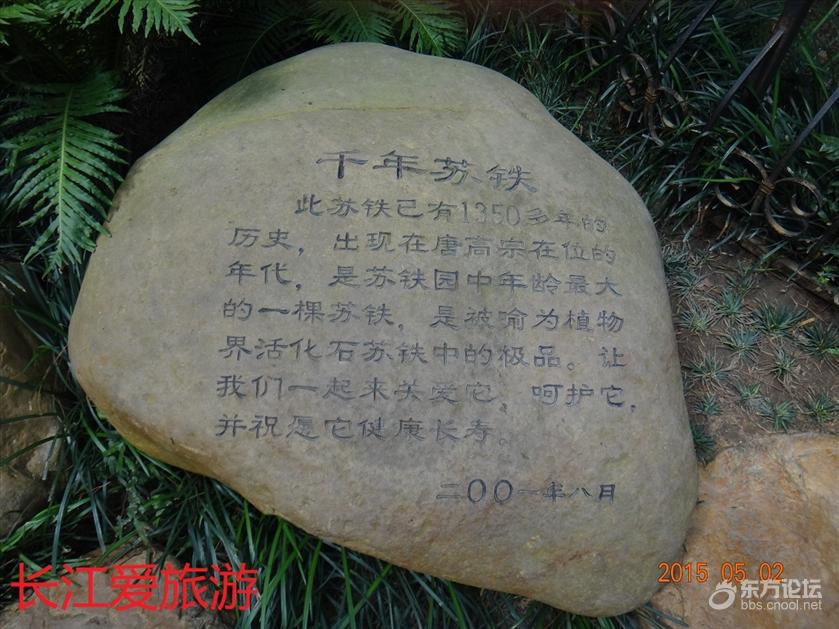 千年苏铁
此苏铁已有1350多年的
历史，出现在唐高宗在位的
年代，是苏铁园中年龄最大
的一棵苏铁，是被喻为植物
界活化石苏铁中的极品。让
我们一起来关爱它，呵护它，
并祝愿它健康长寿。
二〇〇一年八月
长江爱旅游
2015 05 02
东方论坛
bbs.cnool.net